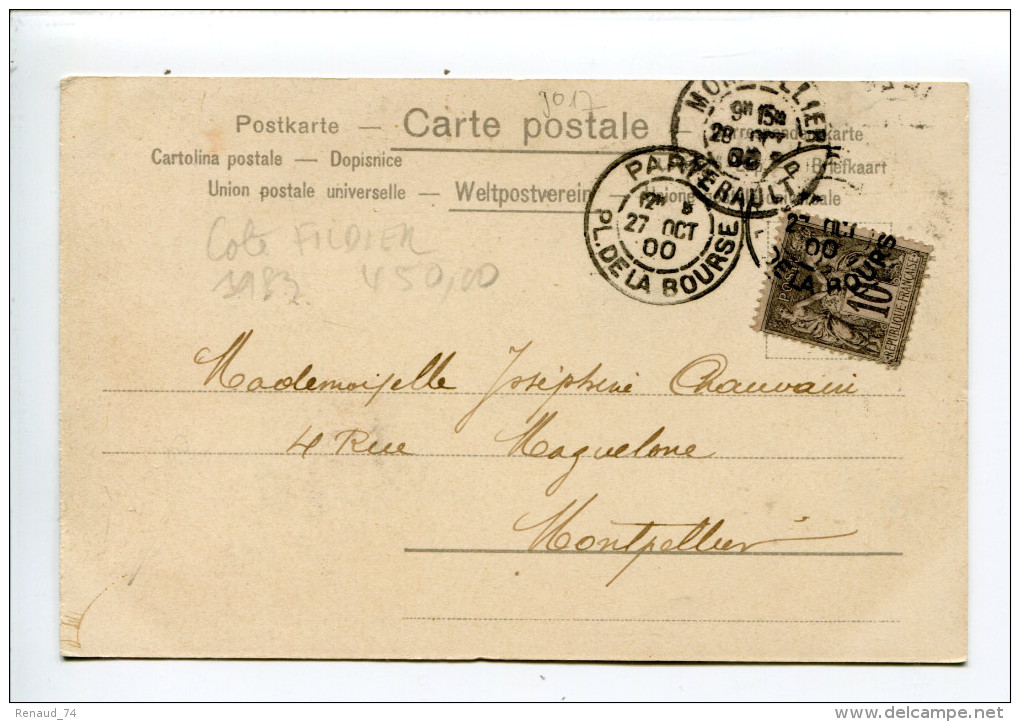 9017
Postkarte — Carte postale —
Cartolina postale — Dopisnice Briefkaart
Union postale universelle — Weltpostverein
MONTPELLIER
9H 15M
28
00
HERAULT
PARIS
27 OCT
00
PL. DE LA BOURSE
27 OCT
00
DE LA BOURS
POSTES
10
REPUBLIQUE FRANÇAISE
Cote FILDIER
1983 450,00
Mademoiselle Joséphine Chauvain
4 Rue Maguelone
Montpellier
Renaud_74
www.delcampe.net